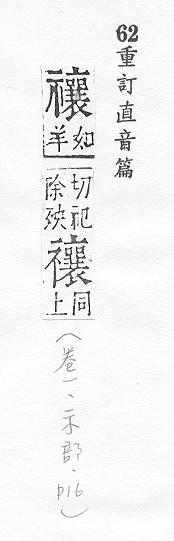 62重訂直音篇
禳如羊
切祀除殃禳同上
（卷一、示部、p16）